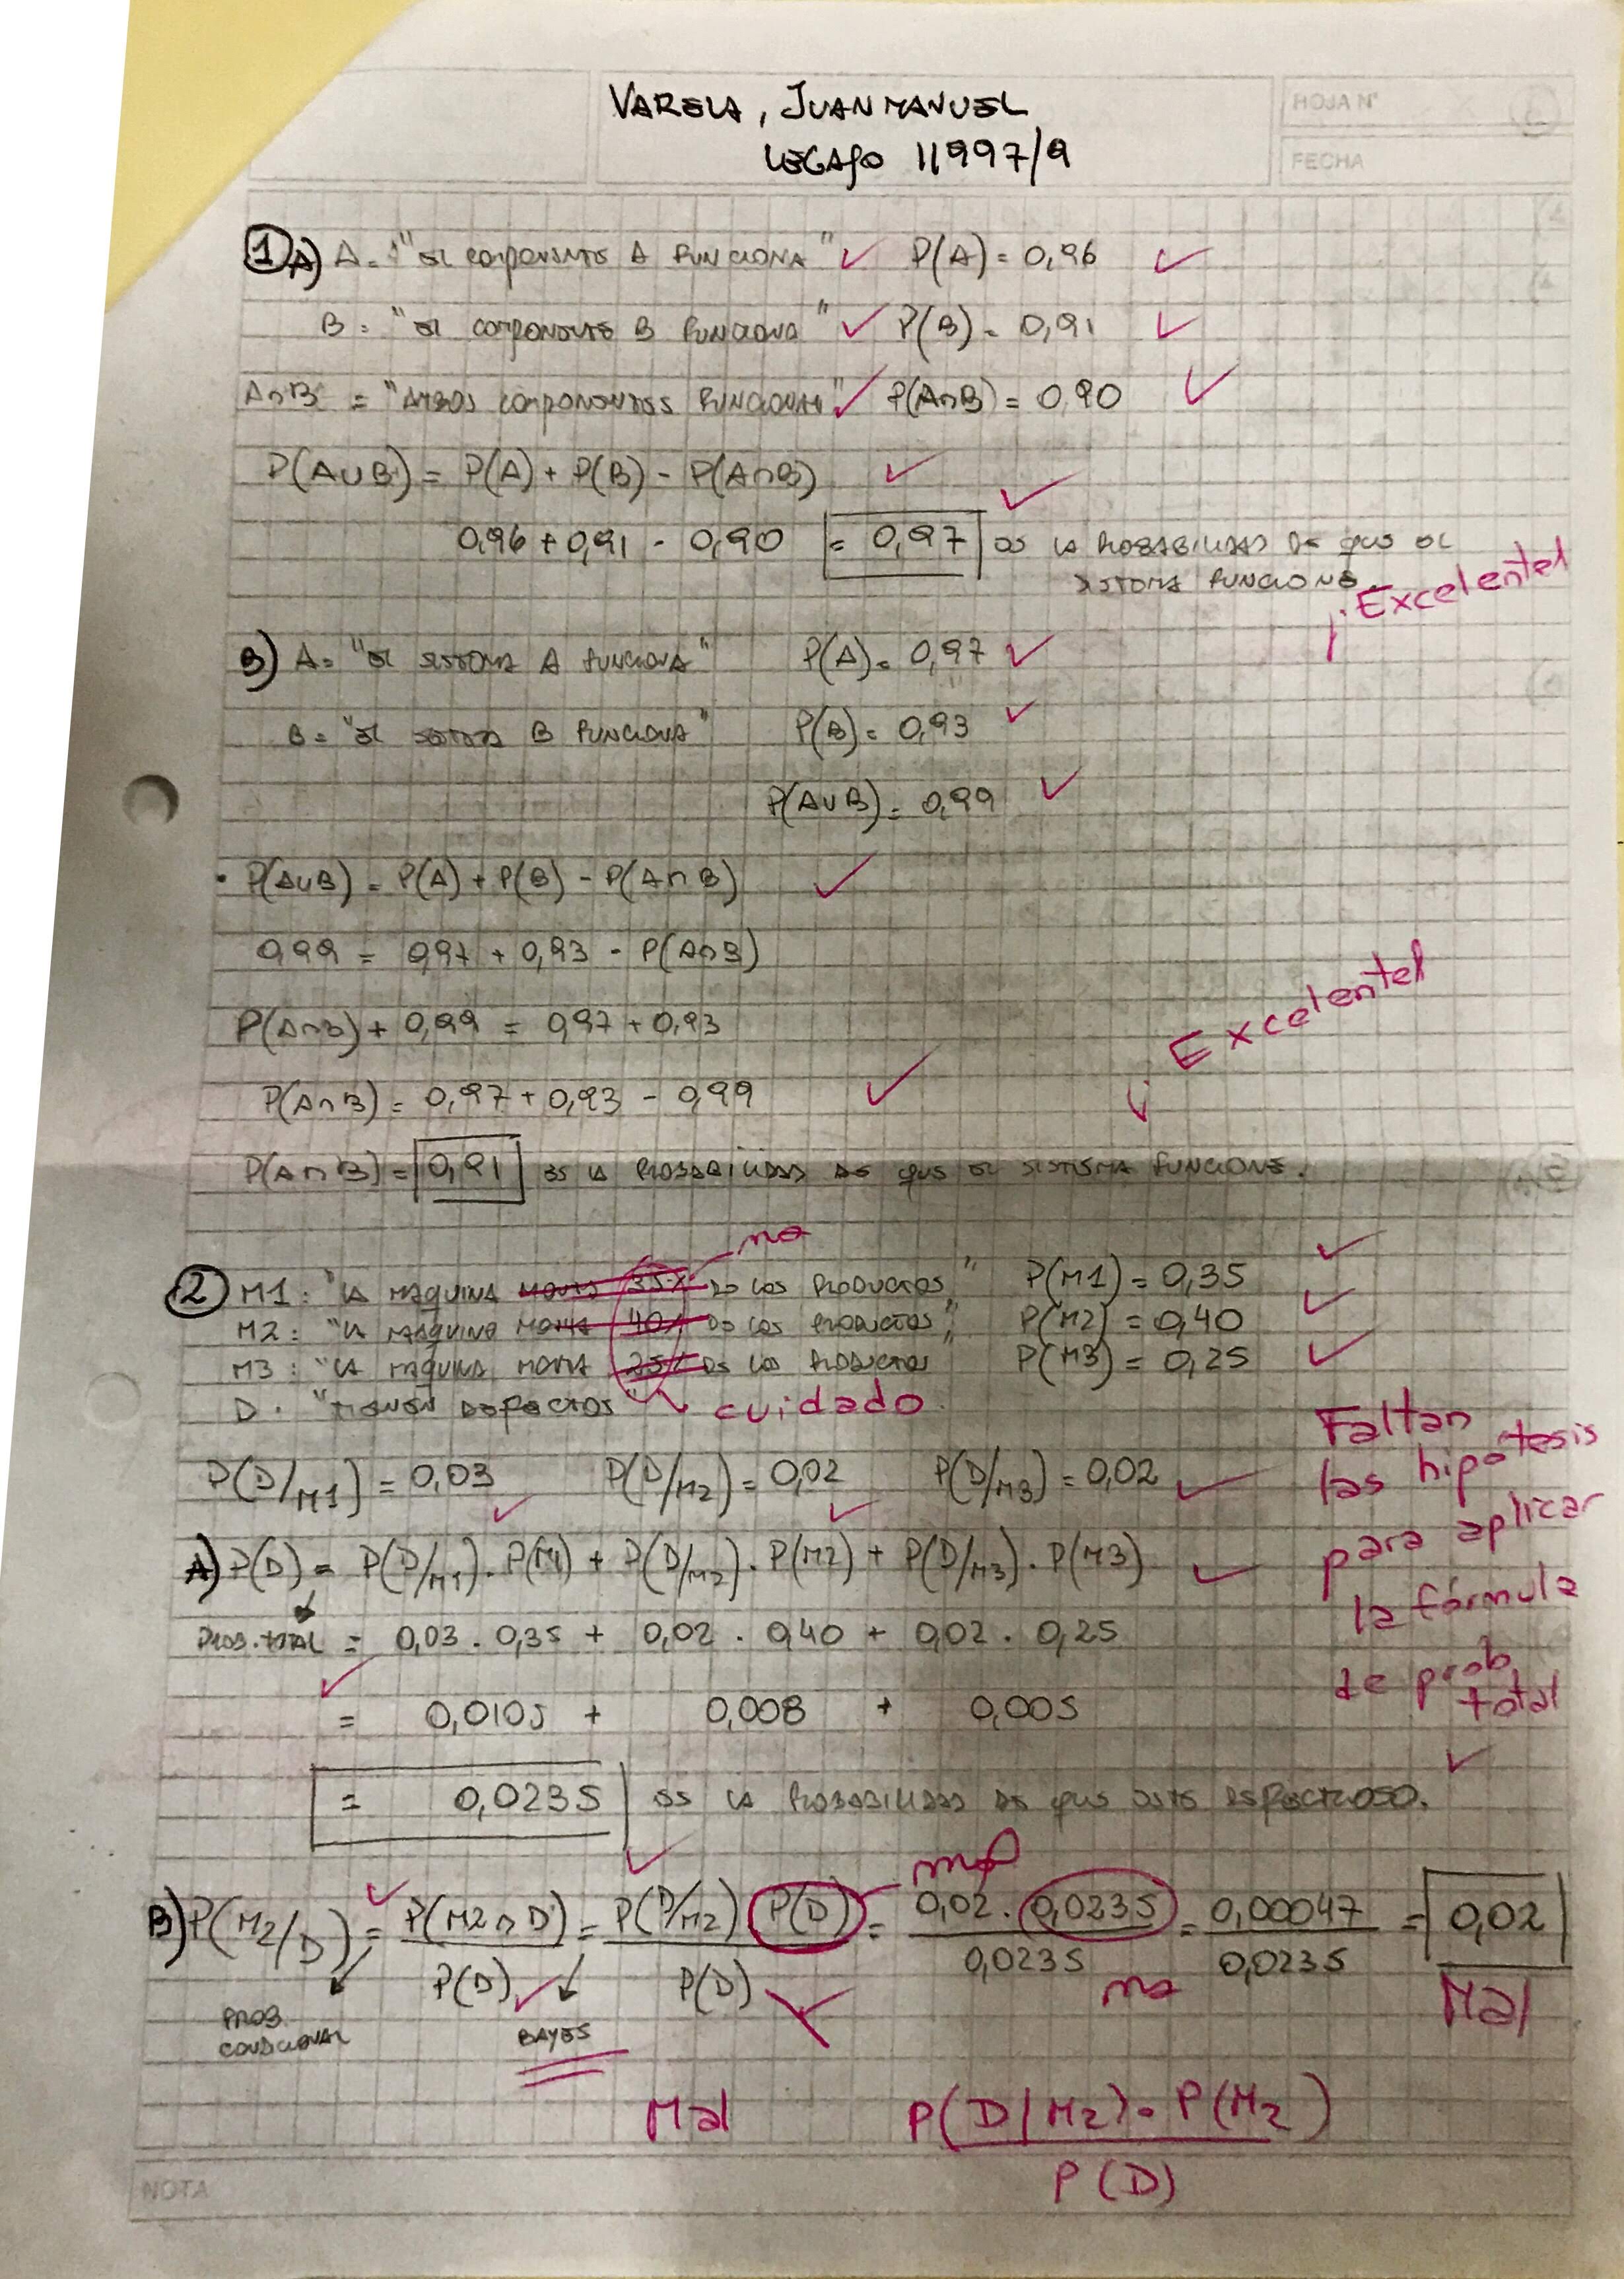 VARELA, JUAN MANUEL
HOJA Nº
LEGAJO 11997/9
FECHA
1 A) A = "EL COMPONENTE A FUNCIONA" P(A) = 0,96
B = "EL COMPONENTE B FUNCIONA" P(B) = 0,91
A∩B = "AMBOS COMPONENTES FUNCIONAN" P(A∩B) = 0,90
P(A∪B) = P(A) + P(B) - P(A∩B)
0,96 + 0,91 - 0,90 = 0,97 ES LA PROBABILIDAD DE QUE EL
SISTEMA FUNCIONE.
¡Excelente!
B) A = "EL SISTEMA A FUNCIONA" P(A) = 0,97
B = "EL SISTEMA B FUNCIONA" P(B) = 0,93
P(A∪B) = 0,99
• P(A∪B) = P(A) + P(B) - P(A∩B)
0,99 = 0,97 + 0,93 - P(A∩B)
P(A∩B) + 0,99 = 0,97 + 0,93
Excelente!
P(A∩B) = 0,97 + 0,93 - 0,99
P(A∩B) = 0,91 ES LA PROBABILIDAD DE QUE EL SISTEMA FUNCIONE.
no
2 M1: "LA MAQUINA MONTA 35% DE LOS PRODUCTOS" P(M1) = 0,35
M2: "LA MAQUINA MONTA 40% DE LOS PRODUCTOS" P(M2) = 0,40
M3: "LA MAQUINA MONTA 25% DE LOS PRODUCTOS P(M3) = 0,25
D: "TIENEN DEFECTOS" cuidado
Faltan
las hipótesis
para aplicar
la fórmula
de prob
total
P(D/M1) = 0,03 P(D/M2) = 0,02 P(D/M3) = 0,02
A) P(D) = P(D/M1) . P(M1) + P(D/M2) . P(M2) + P(D/M3) . P(M3)
PROB. TOTAL = 0,03 . 0,35 + 0,02 . 0,40 + 0,02 . 0,25
= 0,0105 + 0,008 + 0,005
= 0,0235 ES LA PROBABILIDAD DE QUE ESTE DEFECTUOSO.
no
B) P(M2/D) = P(M2∩D)/P(D) = P(D/M2) P(D)/P(D) = 0,02 . 0,0235/0,0235 = 0,00047/0,0235 = 0,02
no
Mal
PROB. CONDICIONAL
BAYES
Mal P(D|M2) . P(M2)
P(D)
NOTA